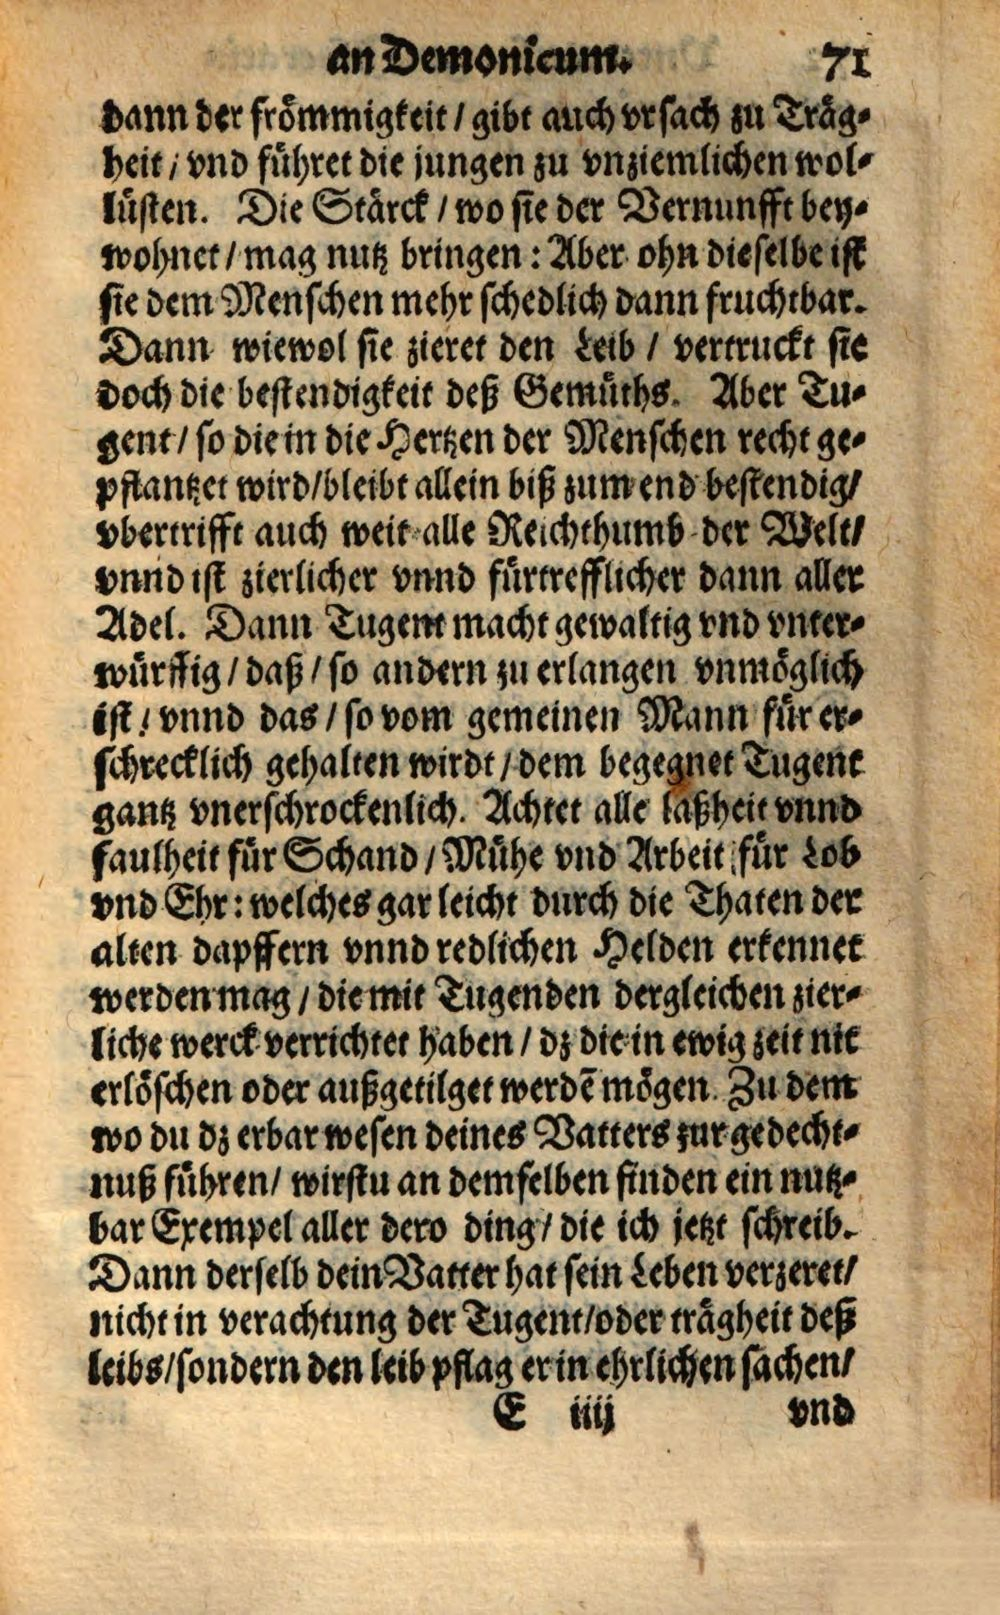 an Demonicum. 71
dann der frömmigkeit / gibt auch vrsach zu Träg-
heit / vnd führet die jungen zu vnziemlichen wol-
lüsten. Die Stärck / wo sie der Vernunfft bey-
wohnet / mag nutz bringen : Aber ohn dieselbe ist
sie dem Menschen mehr schedlich dann fruchtbar.
Dann wiewol sie zieret den Leib / vertruckt sie
doch die bestendigkeit deß Gemüths. Aber Tu-
gent / so die in die Hertzen der Menschen recht ge-
pflantzet wird/bleibt allein biß zum end bestendig/
vbertrifft auch weit alle Reichthumb der Welt/
vnnd ist zierlicher vnnd fürtrefflicher dann aller
Adel. Dann Tugent macht gewaltig vnd vnter-
würffig / daß / so andern zu erlangen vnmöglich
ist / vnnd das / so vom gemeinen Mann für er-
schrecklich gehalten wirdt / dem begegnet Tugent
gantz vnerschrockenlich. Achtet alle laßheit vnnd
faulheit für Schand / Mühe vnd Arbeit für Lob
vnd Ehr : welches gar leicht durch die Thaten der
alten dapffern vnnd redlichen Helden erkennet
werden mag / die mit Tugenden dergleichen zier-
liche werck verrichtet haben / dz die in ewig zeit nit
erlöschen oder außgetilget werdē mögen. Zu dem
wo du dz erbar wesen deines Vatters zur gedecht-
nuß führen/ wirstu an demselben finden ein nutz-
bar Exempel aller dero ding / die ich jetzt schreib.
Dann derselb dein Vatter hat sein Leben verzeret/
nicht in verachtung der Tugent/oder trägheit deß
leibs/sondern den leib pflag er in ehrlichen sachen/
E iiij vnd